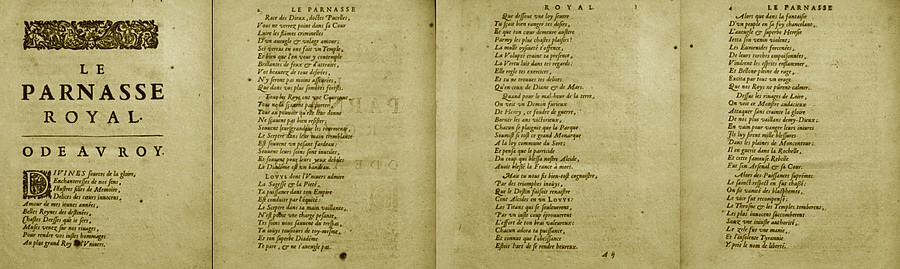 LE
PARNASSE
ROYAL.
ODE AV ROY.
DIVINES sources de la gloire,
Enchanteresses de nos sens,
Illustres filles de Memoire,
Delices des cœurs innocens,
Amour de mes ieunes années,
Belles Reynes des destinées,
Chastes Deesses que ie sers,
Muses venez sur nos riuages,
Pour rendre vos iustes hommages
Au plus grand Roy de l'Vniuers.
2 LE PARNASSE
Race des Dieux, doctes Pucelles,
Vous ne verrez point dans sa Cour
Luire les flames criminelles
D'vn aueugle & volage amour;
Ses vertus en ont fait vn Temple,
Et bien que l'on y contemple
Brillantes de feux & d'attraits,
Vos beautez de tous desirées,
N'y seront pas moins asseurées,
Que dans vos plus sombres forests.
Tous les Roys ont vne Couronne
Tous ne la sçauent pas porter,
Tout au pouuoir qu'elle leur donne
Ne sçauent pas bien resister,
Souuent leur grandeur les
Le Sceptre dans leur main tremblante
Est souuent vn pesant fardeau:
Souuent leurs soins sont inutiles,
Et souuent pour leurs yeux debiles
Le Diadéme est vn bandeau.
LOVYS dont l'Vniuers admire
La Sagesse & la Pieté,
Ta puissance dans ton Empire
Est conduite par l'équité:
Le Sceptre dans ta main vaillante,
N'est point vne charge pesante,
Tes soins nous sauuent du trespas,
Tu iouys tousiours de toy-mesme,
Et ton superbe Diadéme
Te pare, & ne t'aueugle pas.
ROYAL. 3
Que dessous vne loy seuere
Tu sçais bien ranger tes desirs,
Et que ton cœur demeure austere
Parmy les plus chastes plaisirs!
La molle oysiueté t'offence,
La Volupté craint ta presence,
La Vertu luit dans tes regards:
Elle regle tes exercices,
Et tu ne trouues tes delices
Qu'en ceux de Diane & de Mars.
Quand pour le mal-heur de la terre,
On voit vn Demon furieux
De Henry, ce foudre de guerre,
Borner les ans victorieux,
Chacun se plaignit que la Parque
Soumist si tost ce grand Monarque
A la loy commune du Sort;
Et pensa que le parricide
Du coup qui blessa nostre Alcide,
Auoit blessé la France à mort.
Mais tu nous fis bien-tost cognoistre,
Par tes triomphes inouys,
Que le Destin faisoit renaistre
Cent Alcides en un LOVYS:
Les Titans qui se sousleuerent,
Par vn iuste coup éprouuerent
L'effort de ton bras valeureux:
Chacun adora ta puissance,
Et connut que l'obeissance
Estoit l'art de se rendre heureux.
A ij
4 LE PARNASSE
Alors que dans sa fantaisie
D'vn peuple en sa foy chancelant,
L'aueugle & superbe Heresie
Ietta son venin violent;
Les Eumenides forcenées,
De leurs torches empoisonnées,
Vindrent les esprits enflammer,
Et Bellone pleine de rage,
Excita par tout vn orage
Que nos Roys ne pûrent calmer.
Dessus les riuages de Loire,
On voit ce Monstre audacieux
Attaquer sans crainte la gloire
De nos plus vaillans demy-Dieux:
En vain pour vanger leurs iniures
Ils luy font mille blessures
Dans les plaines de Moncontour:
Il en guerit dans la Rochelle,
Et cette fameuse Rebelle
Fut son Arsenal & sa Cour.
Alors des Puissances supremes
Le sainct respect en fut chassé:
On se vanta des blasphemes,
Le vice fut recompensé:
Le Throsne & les Temples tomberent,
Les plus innocens succomberent
Sous vne iniuste authorité,
Le zele fut vne manie,
Et l'insolente Tyrannie
Y prit le nom de liberté.